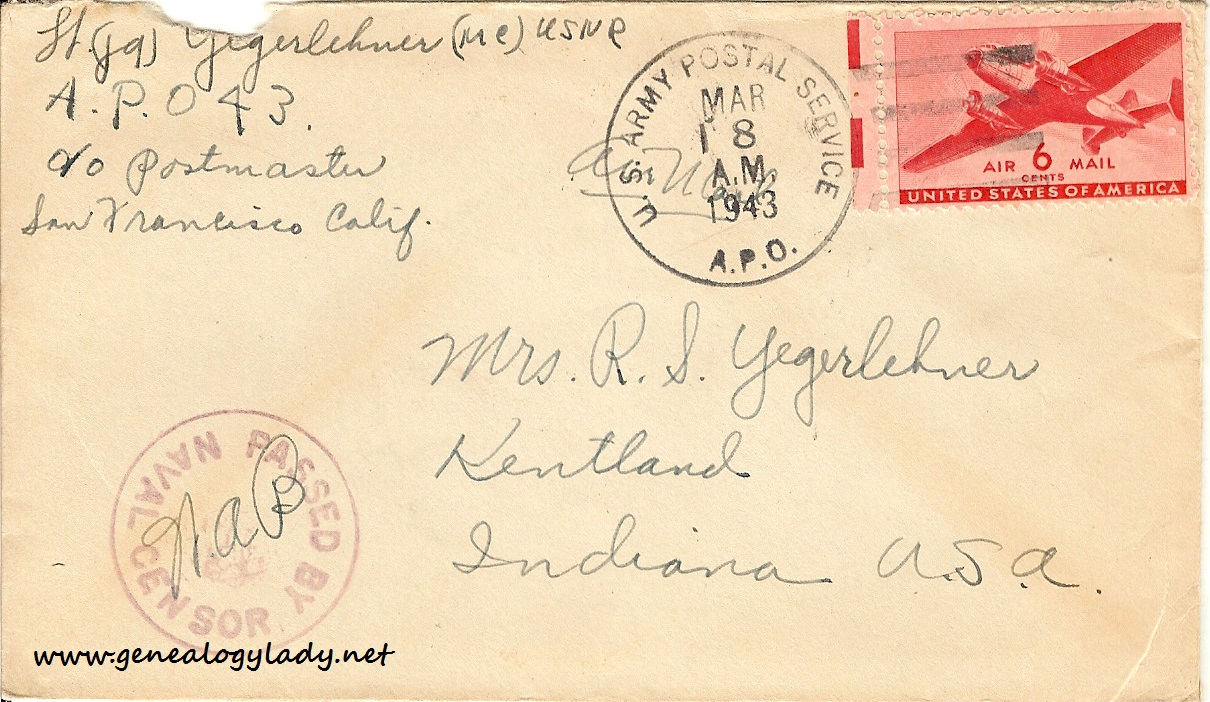 Lt.(jg) Yegerlehner (MC) USNR
A.P.O 43.
c/o Postmaster
San Francisco Calif.
U.S. ARMY POSTAL SERVICE
MAR
18
A.M.
1943
A.P.O.
Air Mail
AIR 6 MAIL
CENTS
UNITED STATES OF AMERICA
Mrs. R. S. Yegerlehner
Kentland
Indiana U.S.A.
PASSED BY
NAVAL CENSOR
www.genealogylady.net